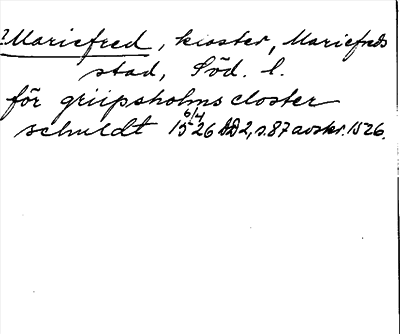 ?Mariefred, kloster, Mariefreds
stad, Söd. l.
för griipsholms closter
schuldt 15 6/4 26 DD2, s.87 avskr. 1526.